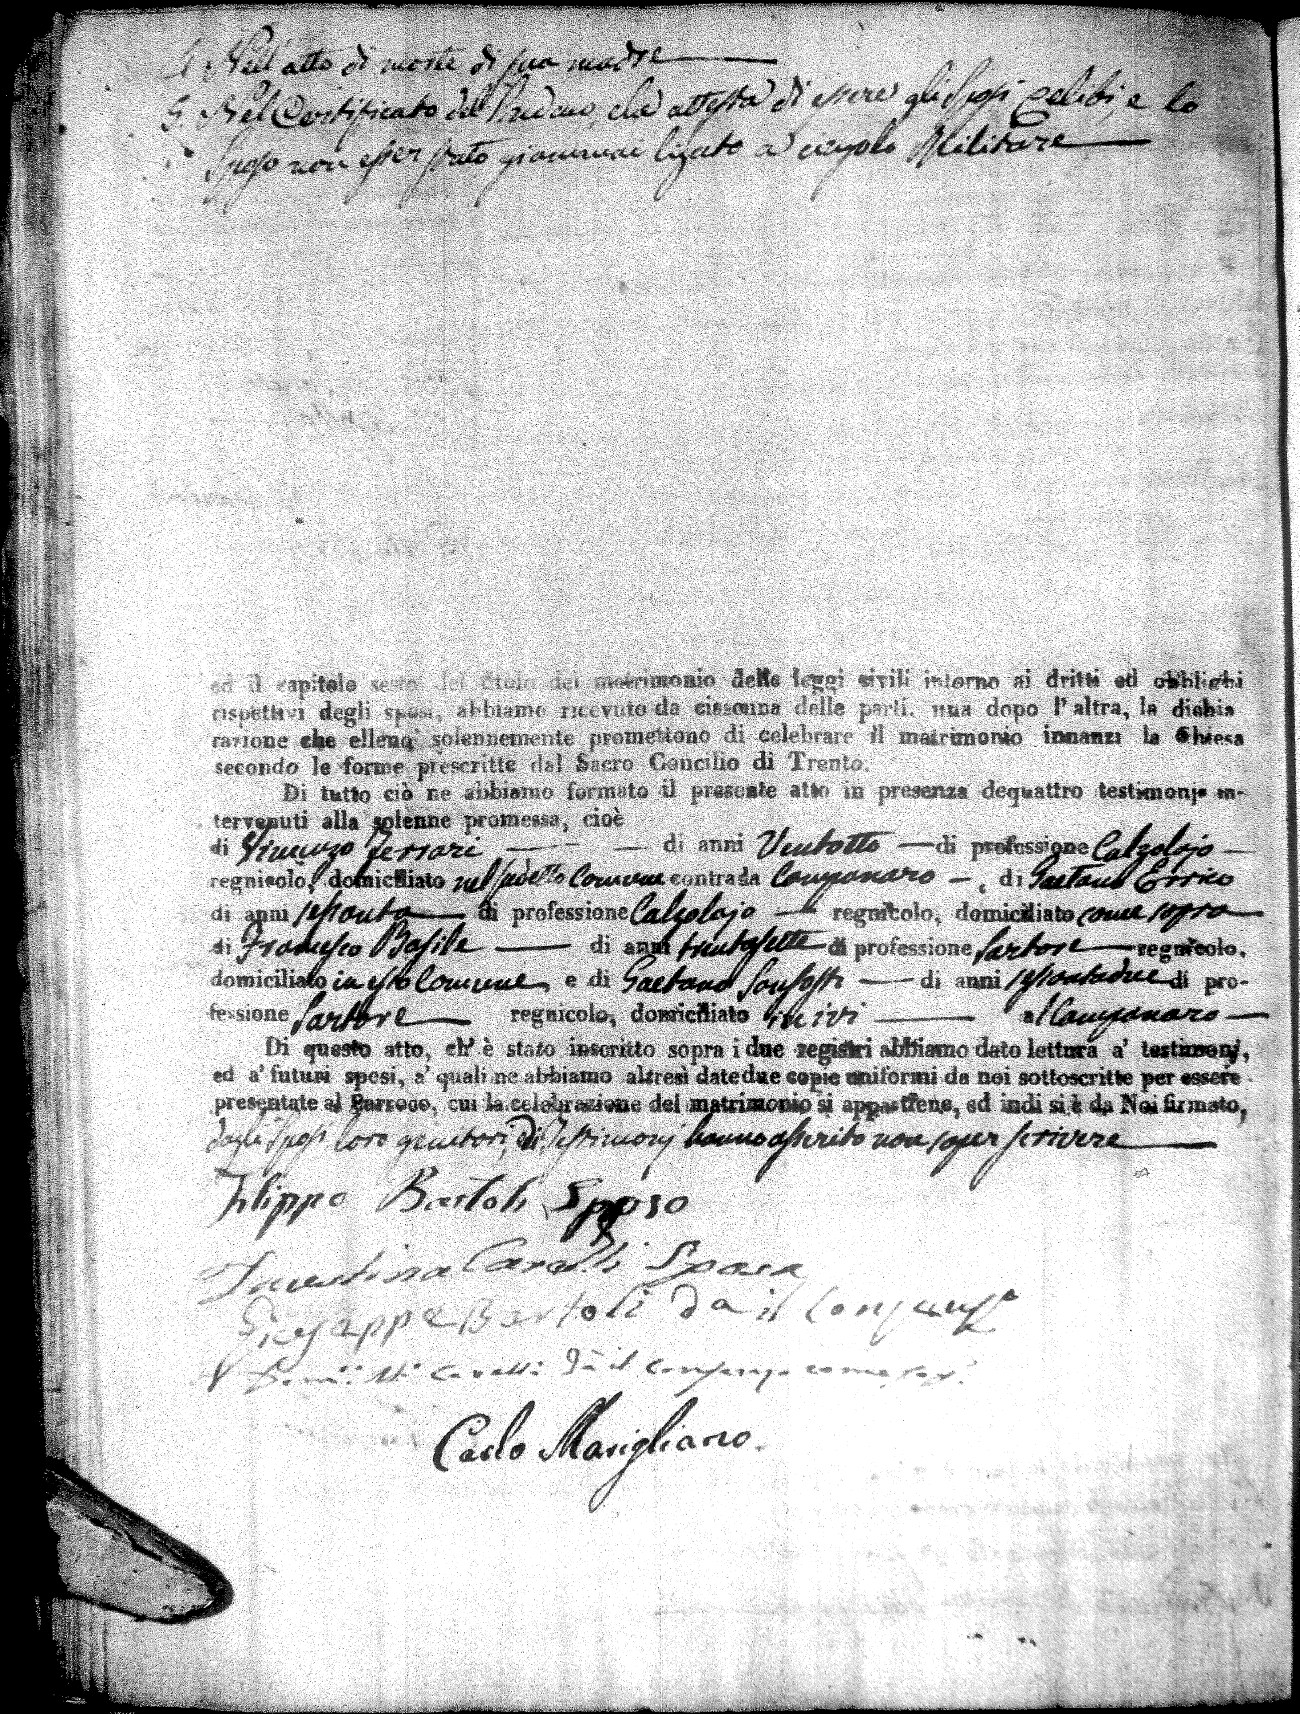 4. Nell'atto di morte di sua madre
5. Nel Certificato del Sindaco, che attesta di essere gli Sposi Celibi, e lo
Sposo non esser stato giammai ligato a vincolo Militare
ed il capitolo sesto del titolo del matrimonio delle leggi civili intorno ai dritti ed obblighi
rispettivi degli sposi, abbiamo ricevuto da ciascuna delle parti, una dopo l'altra, la dichia
razione che elleno solennemente promettono di celebrare il matrimonio innanzi la Chiesa
secondo le forme prescritte dal Sacro Concilio di Trento.
Di tutto ciò ne abbiamo formato il presente atto in presenza dequattro testimonj in-
tervenuti alla solenne promessa, cioè
di Vincenzo Ferrari di anni Ventotto di professione Calzolajo
regnicolo, domiciliato nel sudetto Comune contrada Campanaro, di Gaetano Errico
di anni sessanta di professione Calzolajo regnicolo, domiciliato come sopra
di Francesco Basile di anni trentasette di professione Sartore regnicolo,
domiciliato in esso Comune, e di Gaetano di anni sessantadue di pro-
fessione Sartore regnicolo, domiciliato ivi al Campanaro
Di questo atto, ch' è stato inscritto sopra i due registri abbiamo dato lettura a' testimonj,
ed a' futuri sposi, a' quali ne abbiamo altresì date due copie uniformi da noi sottoscritte per essere
presentate al Parroco, cui la celebrazione del matrimonio si appartiene, ed indi si è da Noi firmato,
dagli Sposi loro genitori, Testimonj hanno asserito non saper scrivere
Filippo Bartoli Sposo
Faustina Carelli Sposa
Giuseppe Bartoli da il
Carelli dà il come sop.
Carlo Marigliano.